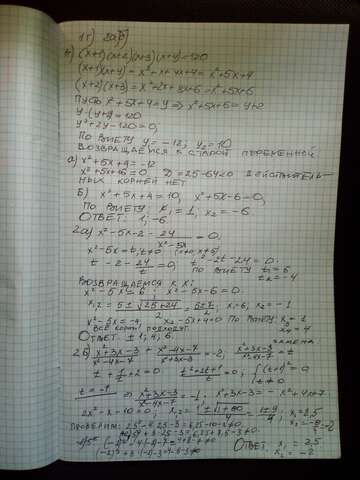 1г) 2а(б)
(x+1)(x+2)(x+3)(x+4)=120
(x+1)(x+4) = x²+x+4x+4 = x²+5x+4
(x+2)(x+3) = x²+2x+3x+6 = x²+5x+6
Пусть x²+5x+4=y => x²+5x+6=y+2
y·(y+2)=120
y²+2y-120=0;
По Виету y₁=-12; y₂=10
Возвращаемся к старой переменной
а) x²+5x+4=-12
x²+5x+16=0 D=25-64<0 действитель-
ных корней нет
Б) x²+5x+4=10, x²+5x-6=0,
По Виету x₁=1, x₂=-6
Ответ 1; -6
2а) x²-5x-2-24/(x²-5x)=0;
x²-5x=t; t≠0
t-2-24/t=0; t²-2t-24=0
по Виету t=6
t=-4
Возвращаемся к x:
x²-5x=6; x²-5x-6=0;
x₁,₂=(5±√(25+24))/2=(5±7)/2; x₁=6, x₂=-1
x²-5x=-4 x²-5x+4=0 по Виету x₃=1
x₄=4
все корни подходят
Ответ: ±1; 4; 6.
2б) (x²+3x-3)/(x²-4x-7)+(x²-4x-7)/(x²+3x-3)=-2;
замена
(x²+3x-3)/(x²-4x-7)=t
t+1/t+2=0; (t²+2t+1)/t=0; {(t+1)²=0
t≠0
t=-1 => (x²+3x-3)/(x²-4x-7)=-1; x²+3x-3=-x²+4x+7
2x²-x-10=0; x₁,₂=(1±√(1+80))/4=(1±9)/4; x₁=2,5
x₂=-2
Проверим:
Ответ: x₁=2,5
x₂=-2